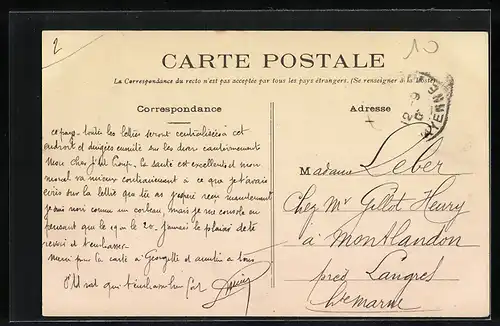 2
10
CARTE POSTALE
La Correspondance du recto n'est pas acceptée par tous les pays étrangers. (Se renseigner à la Poste)
Correspondance
Adresse
toutes les lettres seront centralisées à cet
endroit et dirigées ensuite sur les divers cantonnements
Mon cher petit Loup. La santé est excellente et mon
moral va mieux contrairement à ce que je t'avais
écris sur la lettre que tu as reçue maintenant
je suis noir comme un corbeau, mais je me console en
pensant que le 19 ou le 20 j'aurais le plaisir de te
revoir et t'embrasser
Merci pour la carte à Georgette et à tous
qui t'embrasse bien fort
Madame Leber
Chez Mr Gillot Henry
à Montlandon
près Langres
Hte Marne